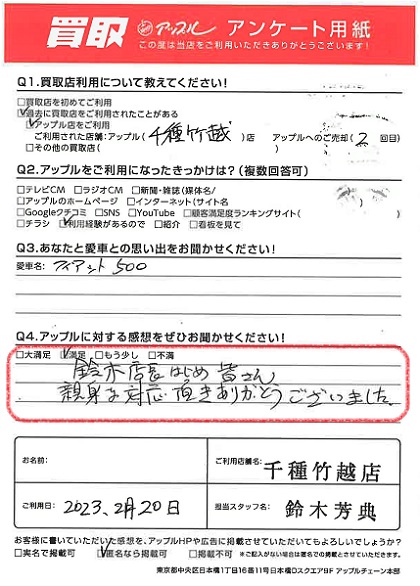 買取 アップル アンケート用紙
この度は当店をご利用いただきありがとうございます!
Q1.買取店利用について教えてください!
□買取店を初めてご利用
☑過去に買取店をご利用されたことがある
☑アップル店をご利用
ご利用された店舗:アップル(千種竹越)店 アップルへのご売却(2 回目)
□その他の買取店( )
Q2.アップルをご利用になったきっかけは?(複数回答可)
□テレビCM □ラジオCM □新聞・雑誌(媒体名/ )
□アップルのホームページ □インターネット(サイト名 )
□Googleクチコミ □SNS □YouTube □顧客満足度ランキングサイト( )
□チラシ ☑利用経験があるので □紹介 □看板を見て
Q3.あなたと愛車との思い出をお聞かせください!
愛車名:フィアット500
Q4.アップルに対する感想をぜひお聞かせください!
□大満足 ☑満足 □もう少し □不満
鈴木店長はじめ皆さん
親身な対応頂きありがとうございました。
お名前:
ご利用店舗名: 千種竹越店
ご利用日: 2023.2月20日
担当スタッフ名: 鈴木芳典
お客様に書いていただいた感想を、アップルHPや広告に掲載させていただいてもよろしいでしょうか?
□実名で掲載可 ☑匿名なら掲載可 □掲載不可 ※ご記入がない場合は匿名での掲載とさせていただきます。
東京都中央区日本橋1丁目16番11号日本橋Dスクエア9F アップルチェーン本部